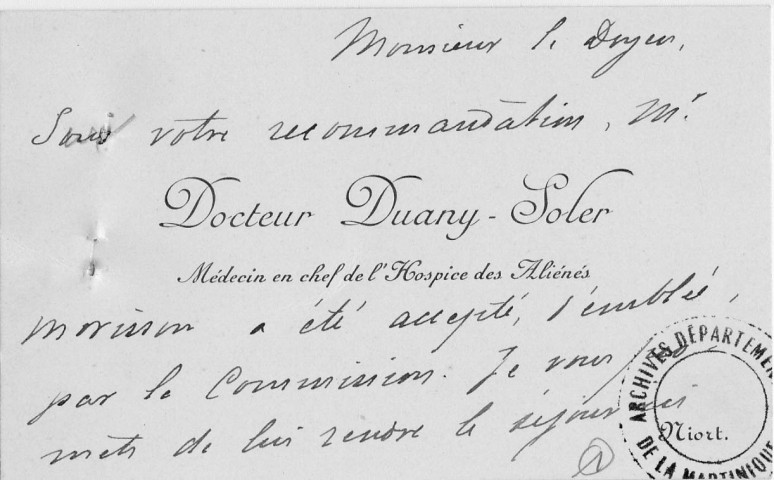 Monsieur le Doyen,
Sous votre recommandation, Mr.
Docteur Duany-Soler
Médecin en chef de l'Hospice des Aliénés
Morisson a été accepté, d'emblée,
par la Commission. Je vous
mets de lui rendre le séjour ici
Niort.
ARCHIVES DÉPARTEMEN
DE LA MARTINIQUE
1